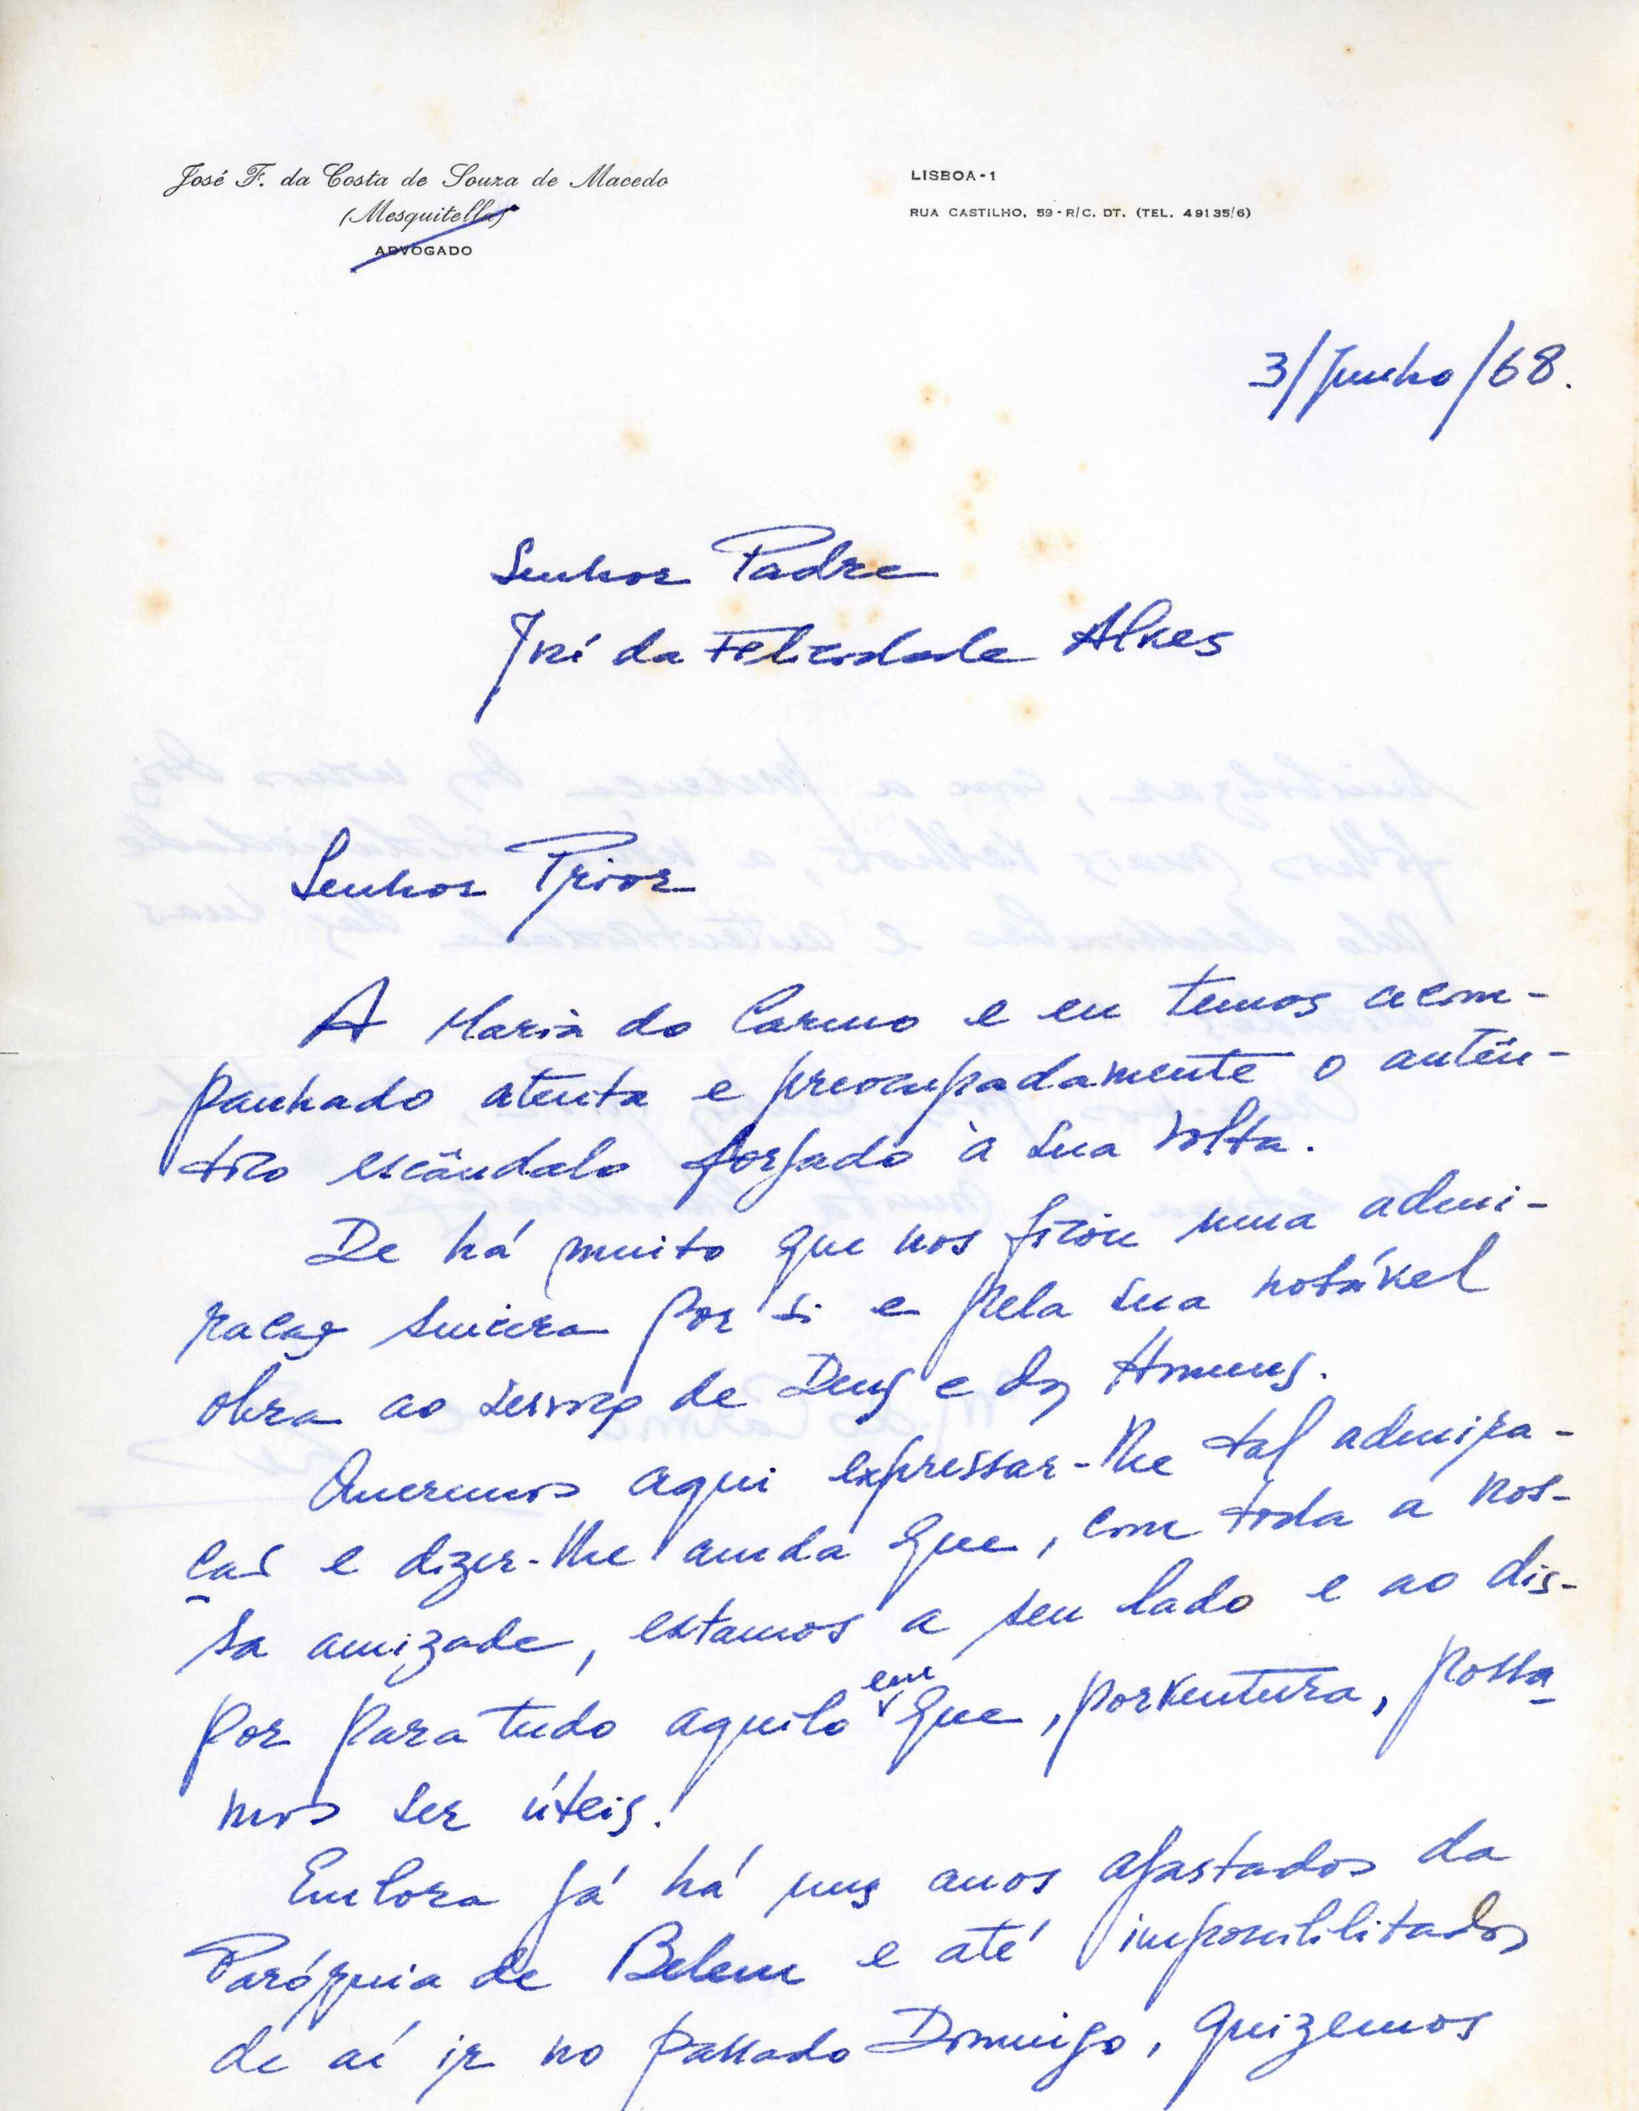 José F. da Costa de Souza de Macedo
(Mesquitella)
ADVOGADO
LISBOA-1
RUA CASTILHO, 59-R/C. DT. (TEL. 49135/6)
3/Junho/68.
Senhor Padre
José da Felicidade Alves
Senhor Prior
A Maria do Carmo e eu temos acom-
panhado atenta e preocupadamente o autên-
tico escândalo forjado à sua volta.
De há muito que nos ficou uma admi-
ração sincera por si e pela sua notável
obra ao serviço de Deus e dos Homens.
Queremos aqui expressar-lhe tal admira-
ção e dizer-lhe ainda que, com toda a nos-
sa amizade, estamos a seu lado e ao dis-
por para tudo aquilo em que, porventura, possa-
mos ser úteis.
Embora já há uns anos afastados da
Paróquia de Belem e até impossibilitados
de aí ir no passado Domingo, quizemos